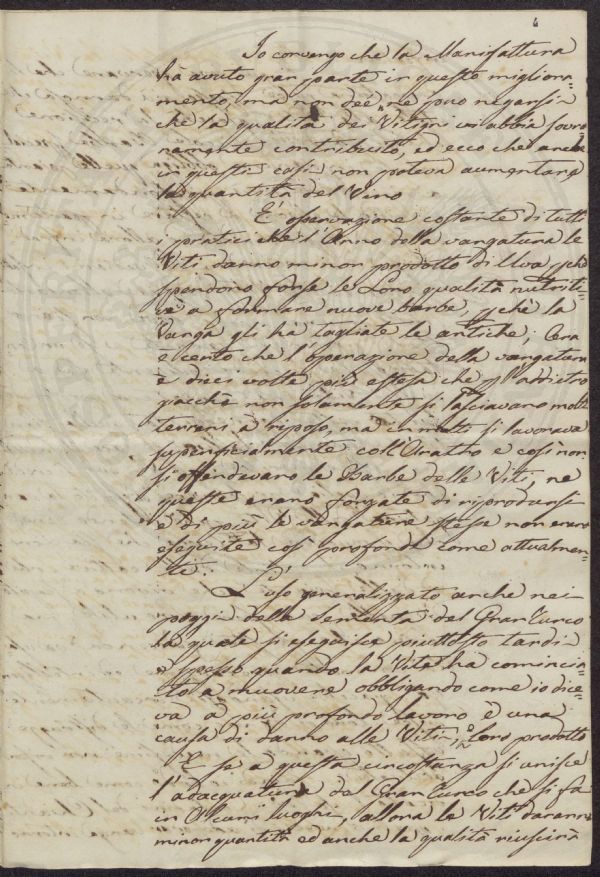 6
Io convengo che la Manifattura
hà avuto gran parte in questo migliora=
mento, ma non deé, ne puo negarsi
che la qualità dei Vitigni vi abbia sovra
namente contribuito, ed ecco che anche
in questi casi non poteva aumentare
la quantità del Vino
E' osservazione costante di tutti
i pratici che l'Anno della vangatura le
Viti danno minor prodotto di Uva, pchè
spendono forse le Loro qualità nutriti=
ve a formare nuove barbe, pchè la
Vanga gli hà tagliate le antiche; Ora
è certo che l'operazione della vangatura
è dieci volte più estesa che pl'addietro
giacchè non solamente si lasciavano molti
terreni à riposo, ma in molti si lavorava
superficialmente coll'Aratro e così non
si offendevano le Barbe delle Viti, ne
queste erano forzate di riprodursi
e di più le vangature stesse non erano
eseguite così profonde come attualmen=
te.
L'uso generalizzato anche nei
poggi della sementa del Gran Turco
la quale si eseguisce piuttosto tardi
e spesso quando la Vite hà comincia=
to a muovere obbligando come io dice=
va a più profondo lavoro è una
causa di danno alle Viti, e loro prodotto
E se a questa circostanza si unisce
l'adacquatura del Gran Turco che si fa
in alcuni luoghi, allora le Viti daranno
minor quantità ed anche la qualità riuscirà